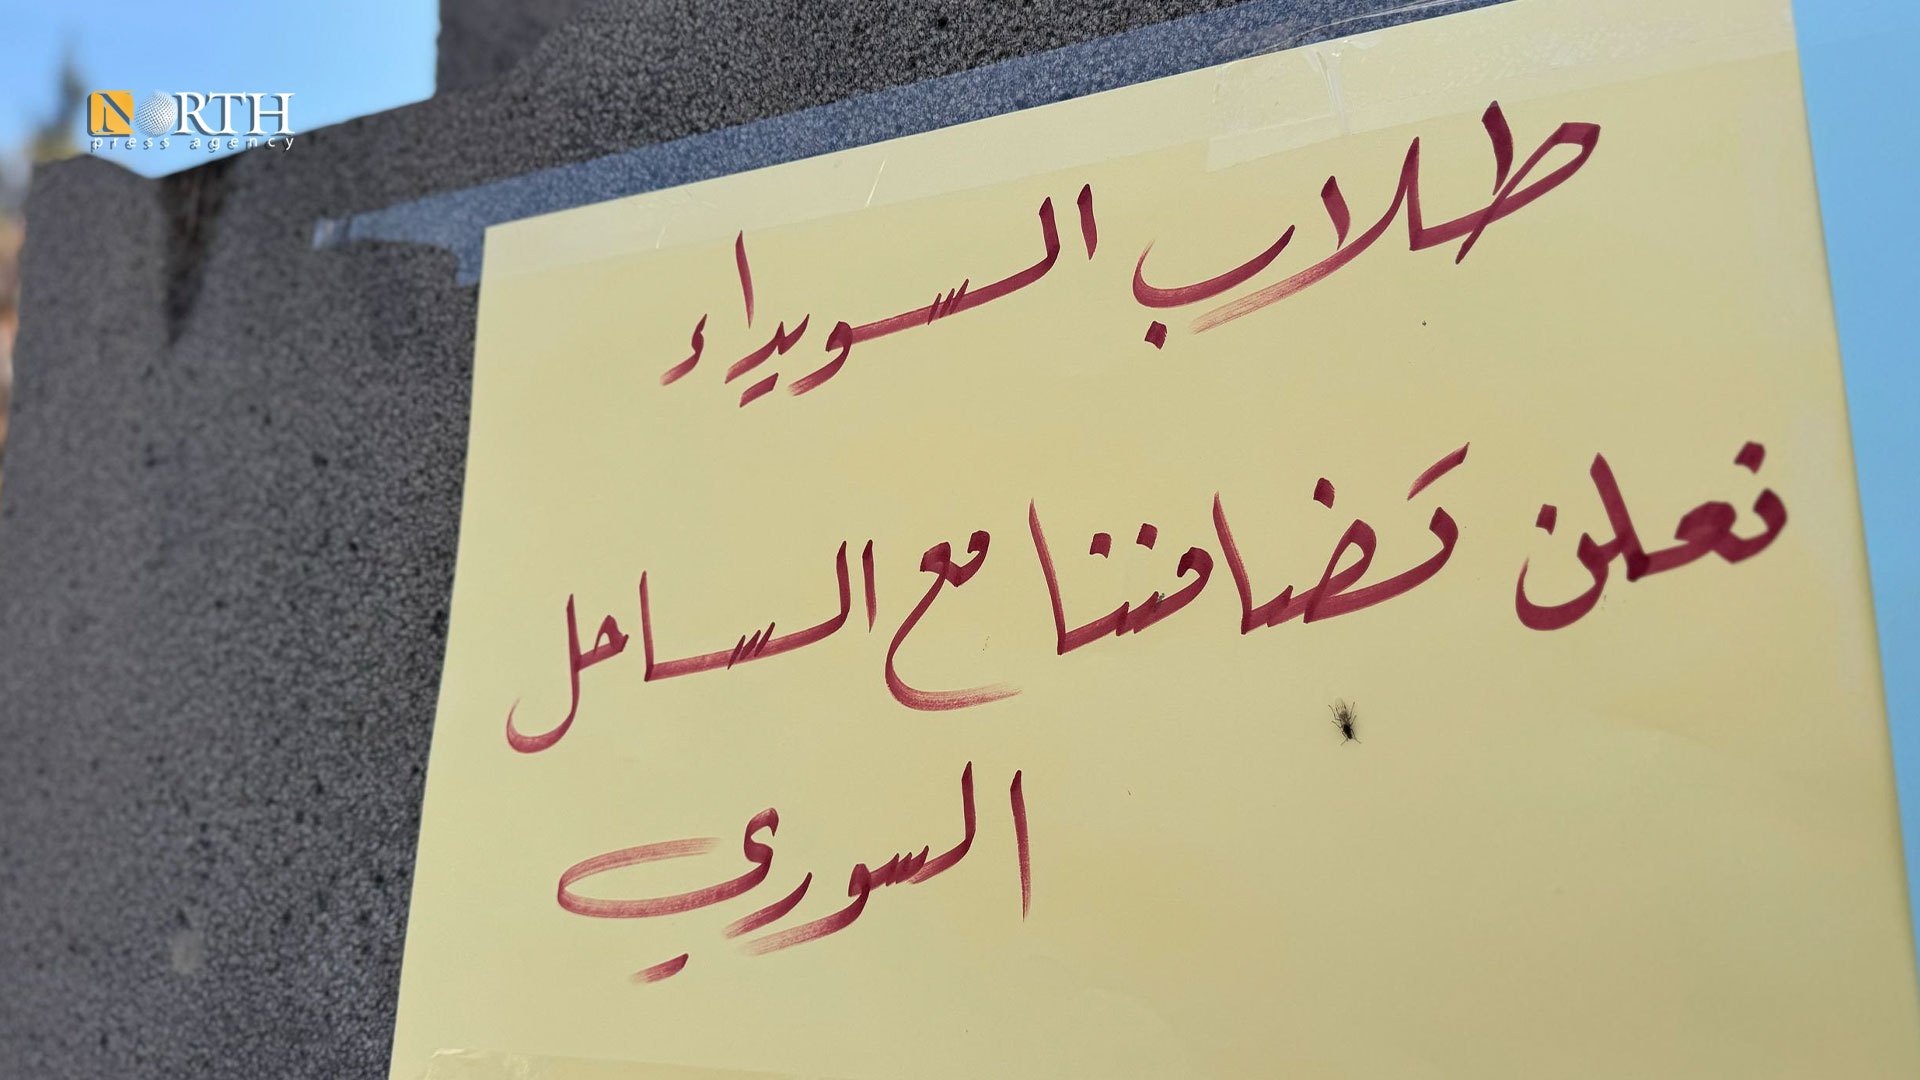 NORTH
press agency
طلاب السويداء
نعلن تضامننا مع الساحل
السوري